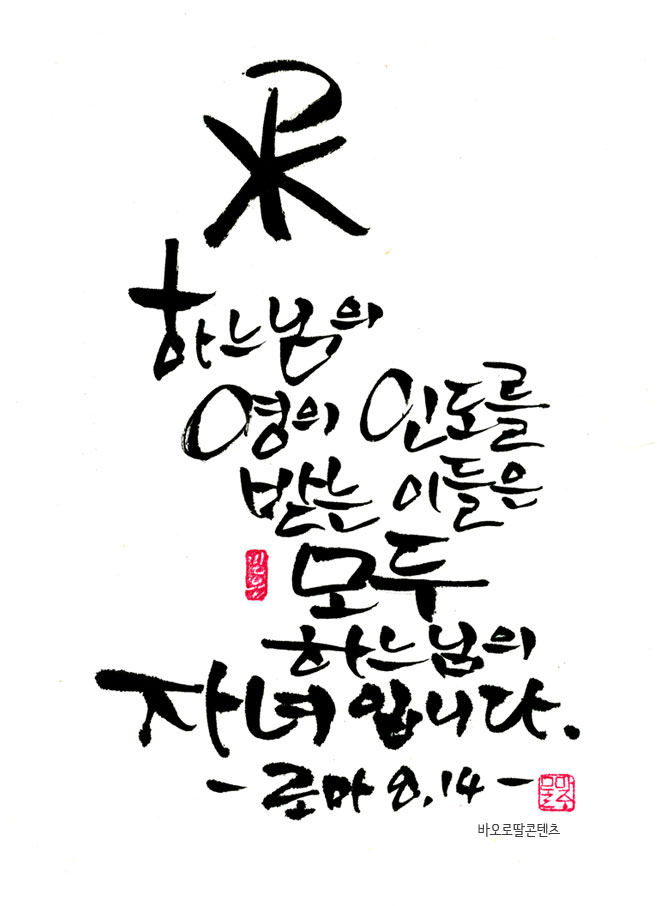 하느님의
영의 인도를
받는 이들은
모두
하느님의
자녀입니다.
- 로마 8,14 -
바오로딸콘텐츠